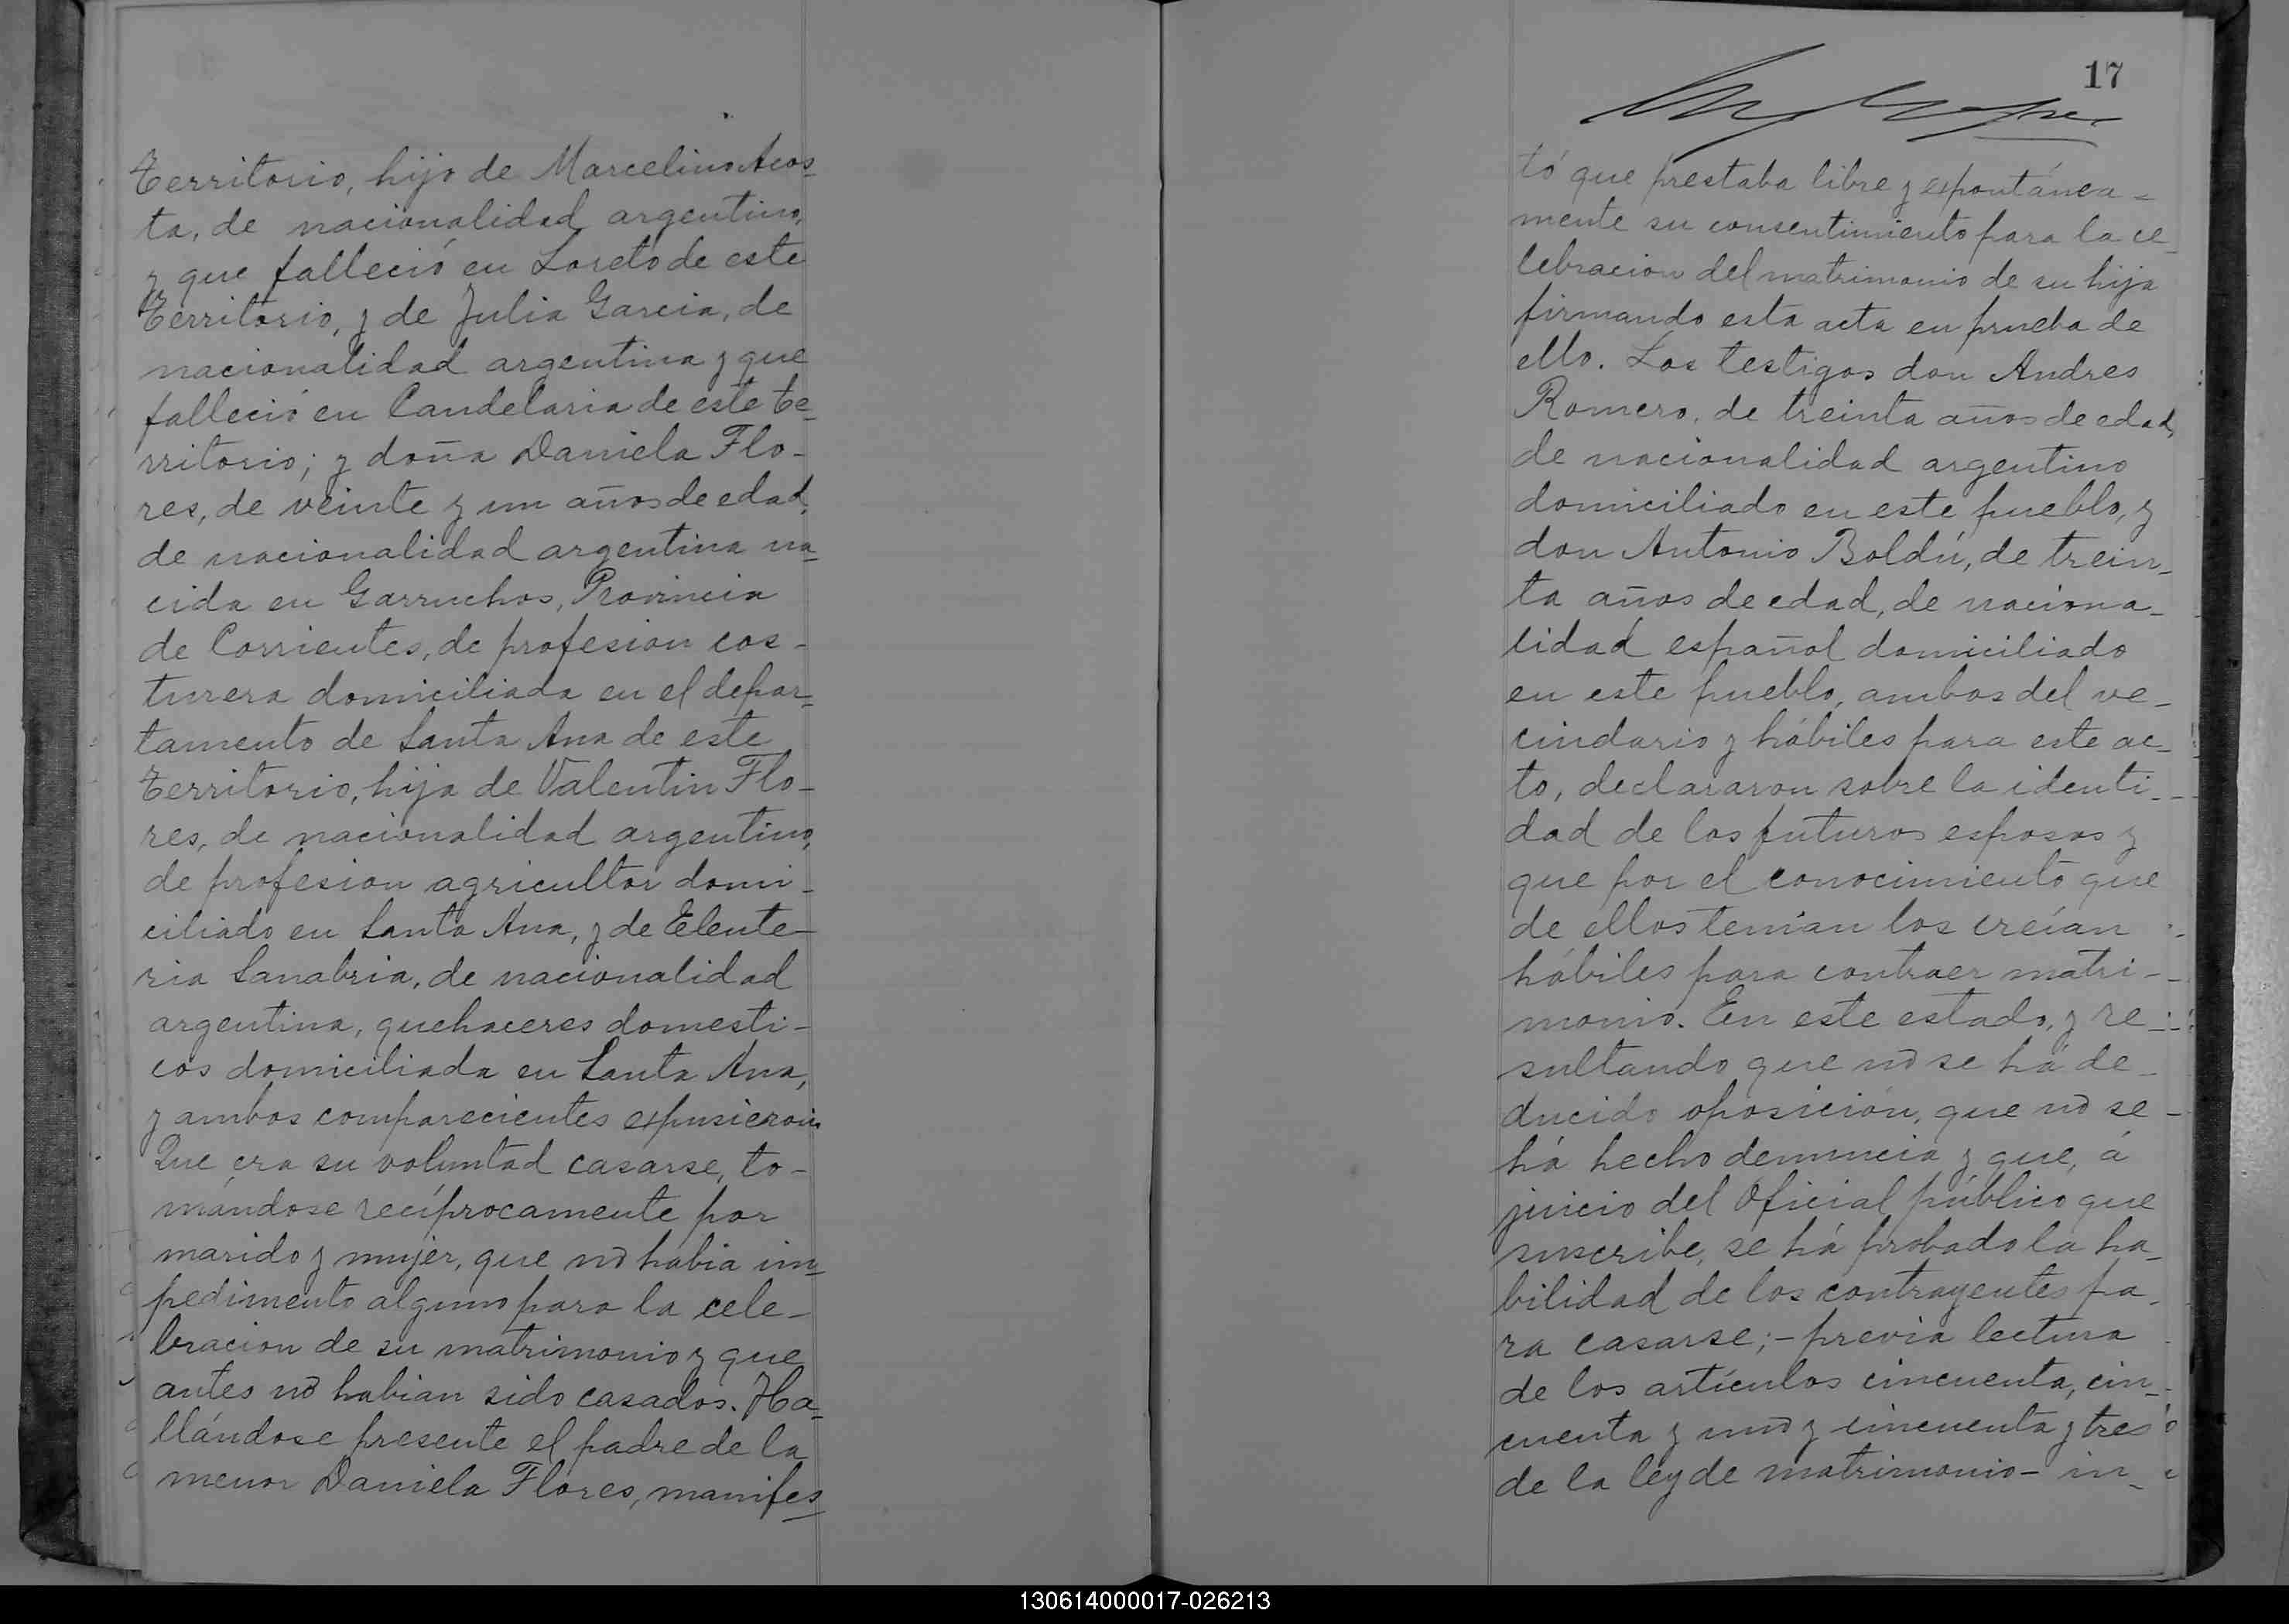 territorio, hijo de Marcelino Acos-
ta, de nacionalidad argentino,
y que falleció en Loreto de este
Territorio, y de Julia Garcia, de
nacionalidad argentina y que
falleció en Candelaria de este te-
rritorio; y doña Daniela Flo-
res, de veinte y un años de edad,
de nacionalidad argentina na-
cida en Garruchos, Provincia
de Corrientes, de profesion cos-
turera domiciliada en el depar-
tamento de Santa Ana de este
territorio, hija de Valentin Flo-
res, de nacionalidad argentino,
de profesion agricultor domi-
ciliado en Santa Ana, y de Eleute-
ria Sanabria, de nacionalidad
argentina, quehaceres domesti-
cos domiciliada en Santa Ana,
y ambos comparecientes expusieron
Que era su voluntad casarse, to-
mándose recíprocamente por
marido y mujer, que no habia im-
pedimento alguno para la cele-
bracion de su matrimonio y que
antes no habian sido casados. Ha-
llándose presente el padre de la
menor Daniela Flores, manifes
17
tó que prestaba libre y expontánea-
mente su consentimiento para la ce-
lebracion del matrimonio de su hija
firmando esta acta en prueba de
ello. Los testigos don Andres
Romero, de treinta años de edad,
de nacionalidad argentino
domiciliado en este pueblo, y
don Antonio Boldú, de trein-
ta años de edad, de naciona-
lidad español domiciliado
en este pueblo, ambos del ve-
cindario y hábiles para este ac-
to, declararon sobre la identi-
dad de los futuros esposos y
que por el conocimiento que
de ellos tenían los creían
hábiles para contraer matri-
monio. En este estado, y re-
sultando que no se há de-
ducido oposición, que no se
há hecho denuncia y que, á
juicio del Oficial público que
suscribe, se há probado la ha-
bilidad de los contrayentes pa-
ra casarse;- previa lectura
de los artículos cincuenta, cin-
cuenta y uno y cincuenta y tres
de la ley de matrimonio- in-
130614000017-026213